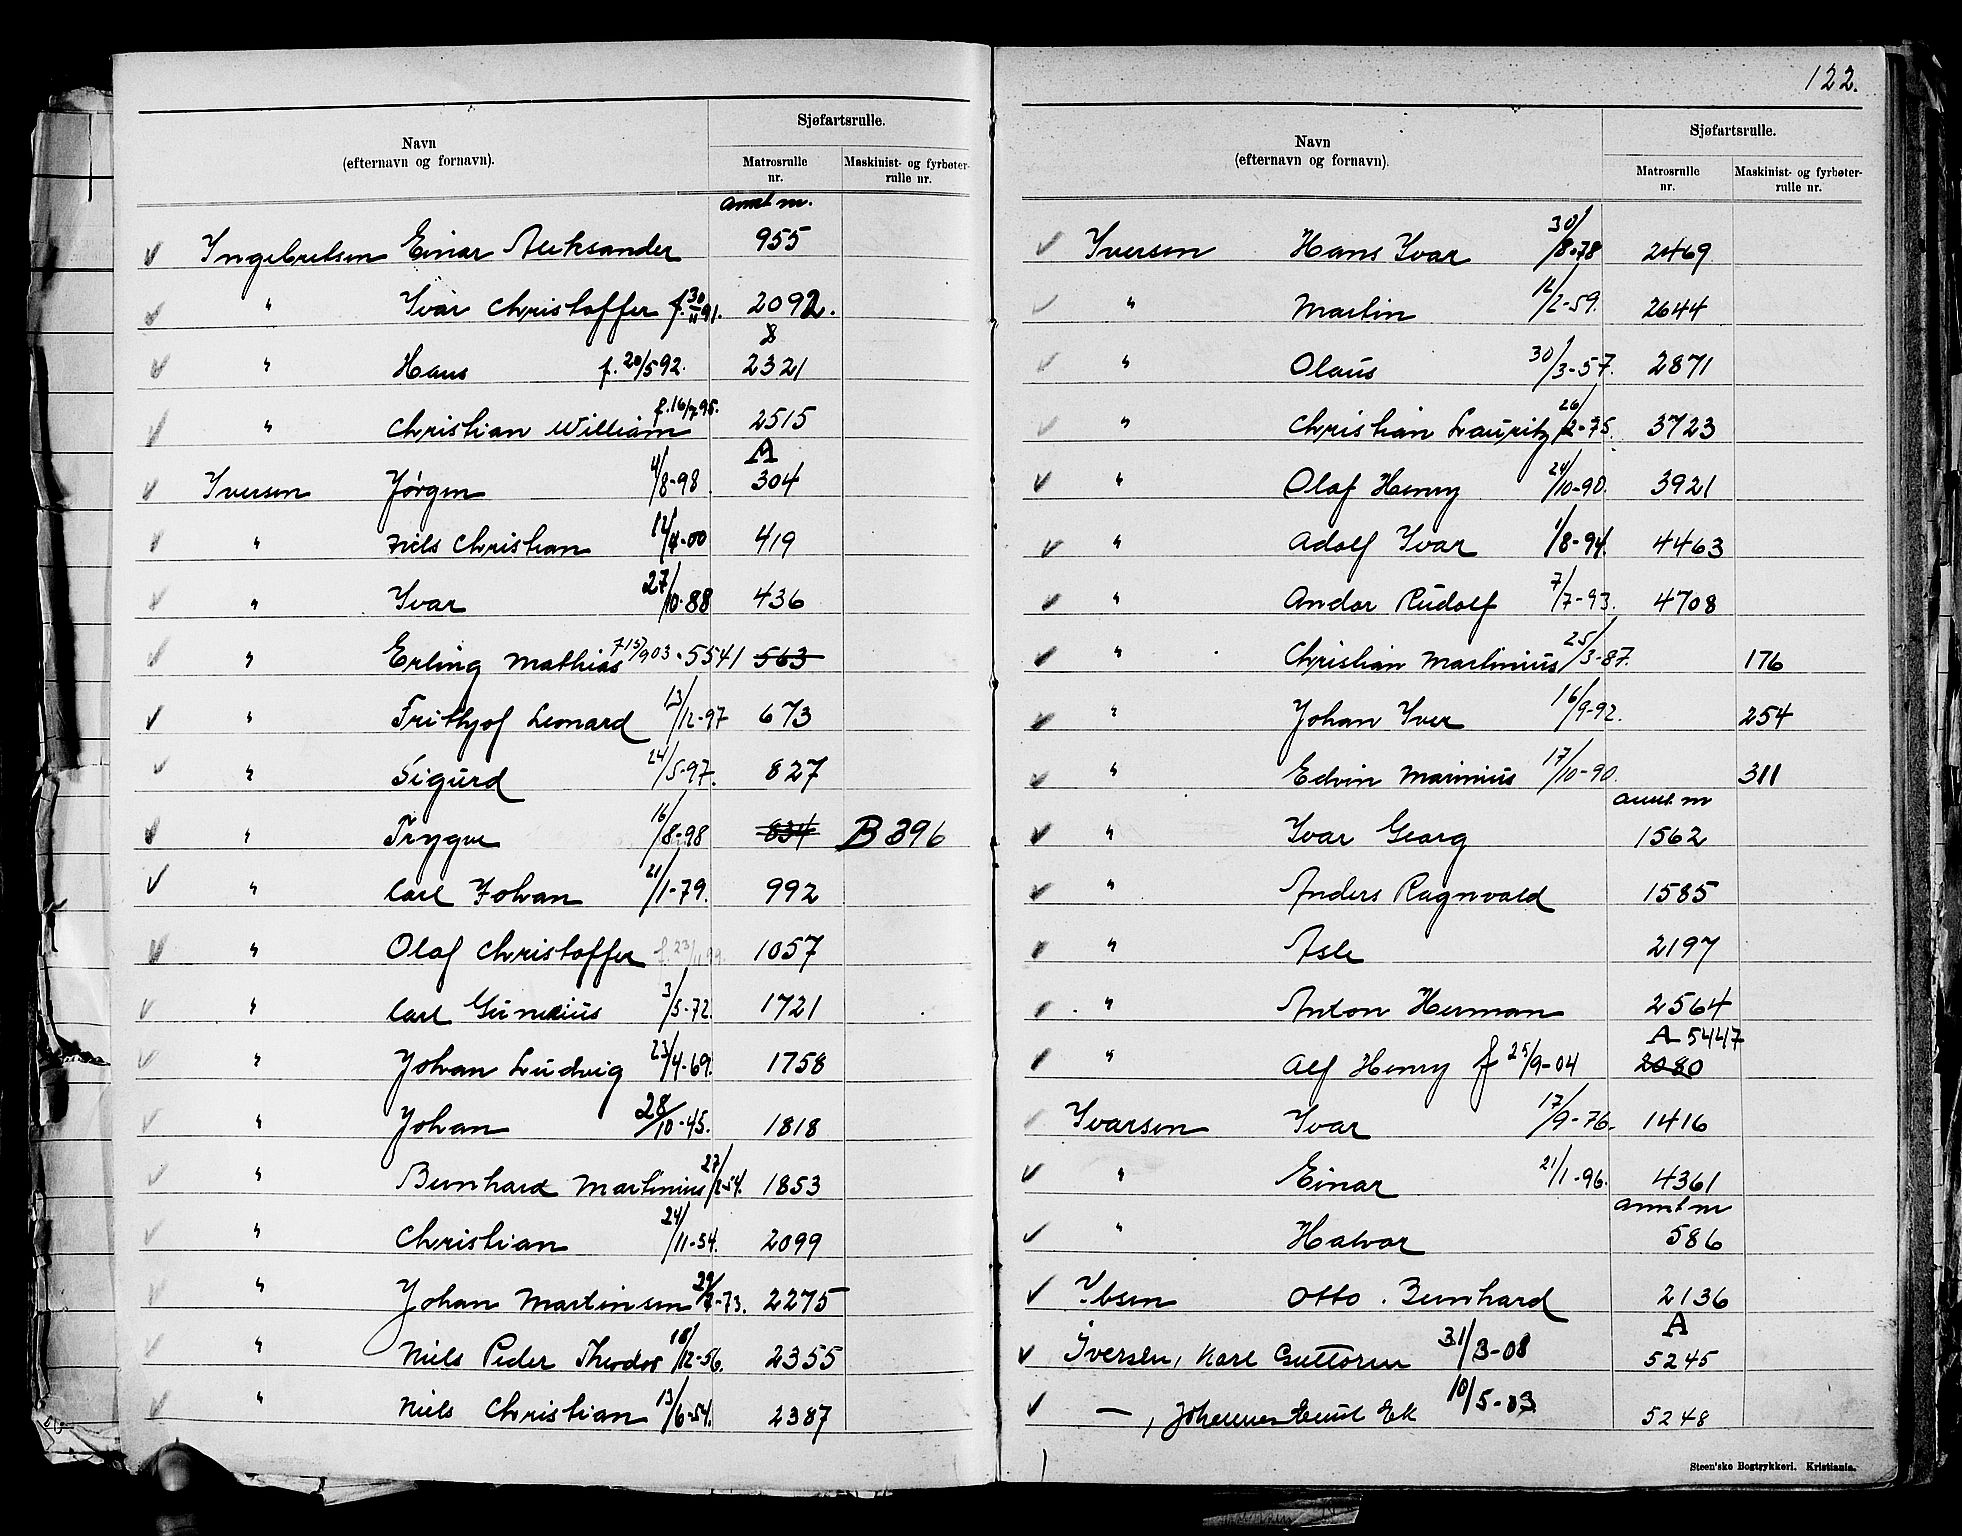 Navn
(efternavn og fornavn).
Sjøfartsrulle.
Matrosrulle nr.
Maskinist- og fyrbøter-rulle nr.
annt m.
Ingebretsen Einar Aleksander 955
" Ivar Christoffer f. 30/11 91. 2092.
" Hans f. 20/5 92. 2321
" Christian William f. 16/7 95. 2515
A
Iversen Jørgen 4/8-98 304
" Niels Christian 12/4-00 419
" Ivar 27/10-88 436
" Erling Mathias 15/9 03 - 5541 563
" Frithjof Leonard 13/12-97 673
" Sigurd 24/5-97. 827
" Trygve 16/8-98 834 B 396
" Carl Johan 21/1-79. 992
" Olaf Christoffer f. 23/11 99 1057
" Carl 3/5-72. 1721
" Johan Ludvig 23/4-69. 1758
" Johan 28/10-45. 1818
" Bernhard Martinius 27/2-54. 1853
" Christian 24/11-54. 2099
" Johan Martinsen 29/7-73. 2275
" Niels Peder Theodor 18/12-56. 2355
" Niels Christian 13/6-54. 2387
122.
Navn
(efternavn og fornavn).
Sjøfartsrulle.
Matrosrulle nr.
Maskinist- og fyrbøter-rulle nr.
Iversen Hans Ivar 30/8-78 2469
" Martin 12/2-59. 2644
" Olaus 30/3-57. 2871
" Christian Lauritz 26/2-75. 3723
" Olaf Henry 24/10-90. 3921
" Adolf Ivar 1/8-94. 4463
" Andor Rudolf 7/7-93. 4708
" Christian Martinius 25/3-87. 176
" Johan Iver 16/9-92. 254
" Edvin Marinius 17/10-90. 311
annt m
" Ivar Georg 1562
" Anders Ragnvald 1585
" Asle 2197
" Anton Herman 2564
A 5447
" Alf Henry f 25/9-04 2080
Ivarsen Ivar 17/9-76. 1416
" Einar 21/1-96. 4361
annt m
" Halvor 586
Ibsen Otto Bernhard 2136
A
Iversen, Karl Guttorm 31/3-08 5245
— , Johannes Emil Ek 10/5-03 5248
Steen'ske Bogtrykkeri. Kristiania.